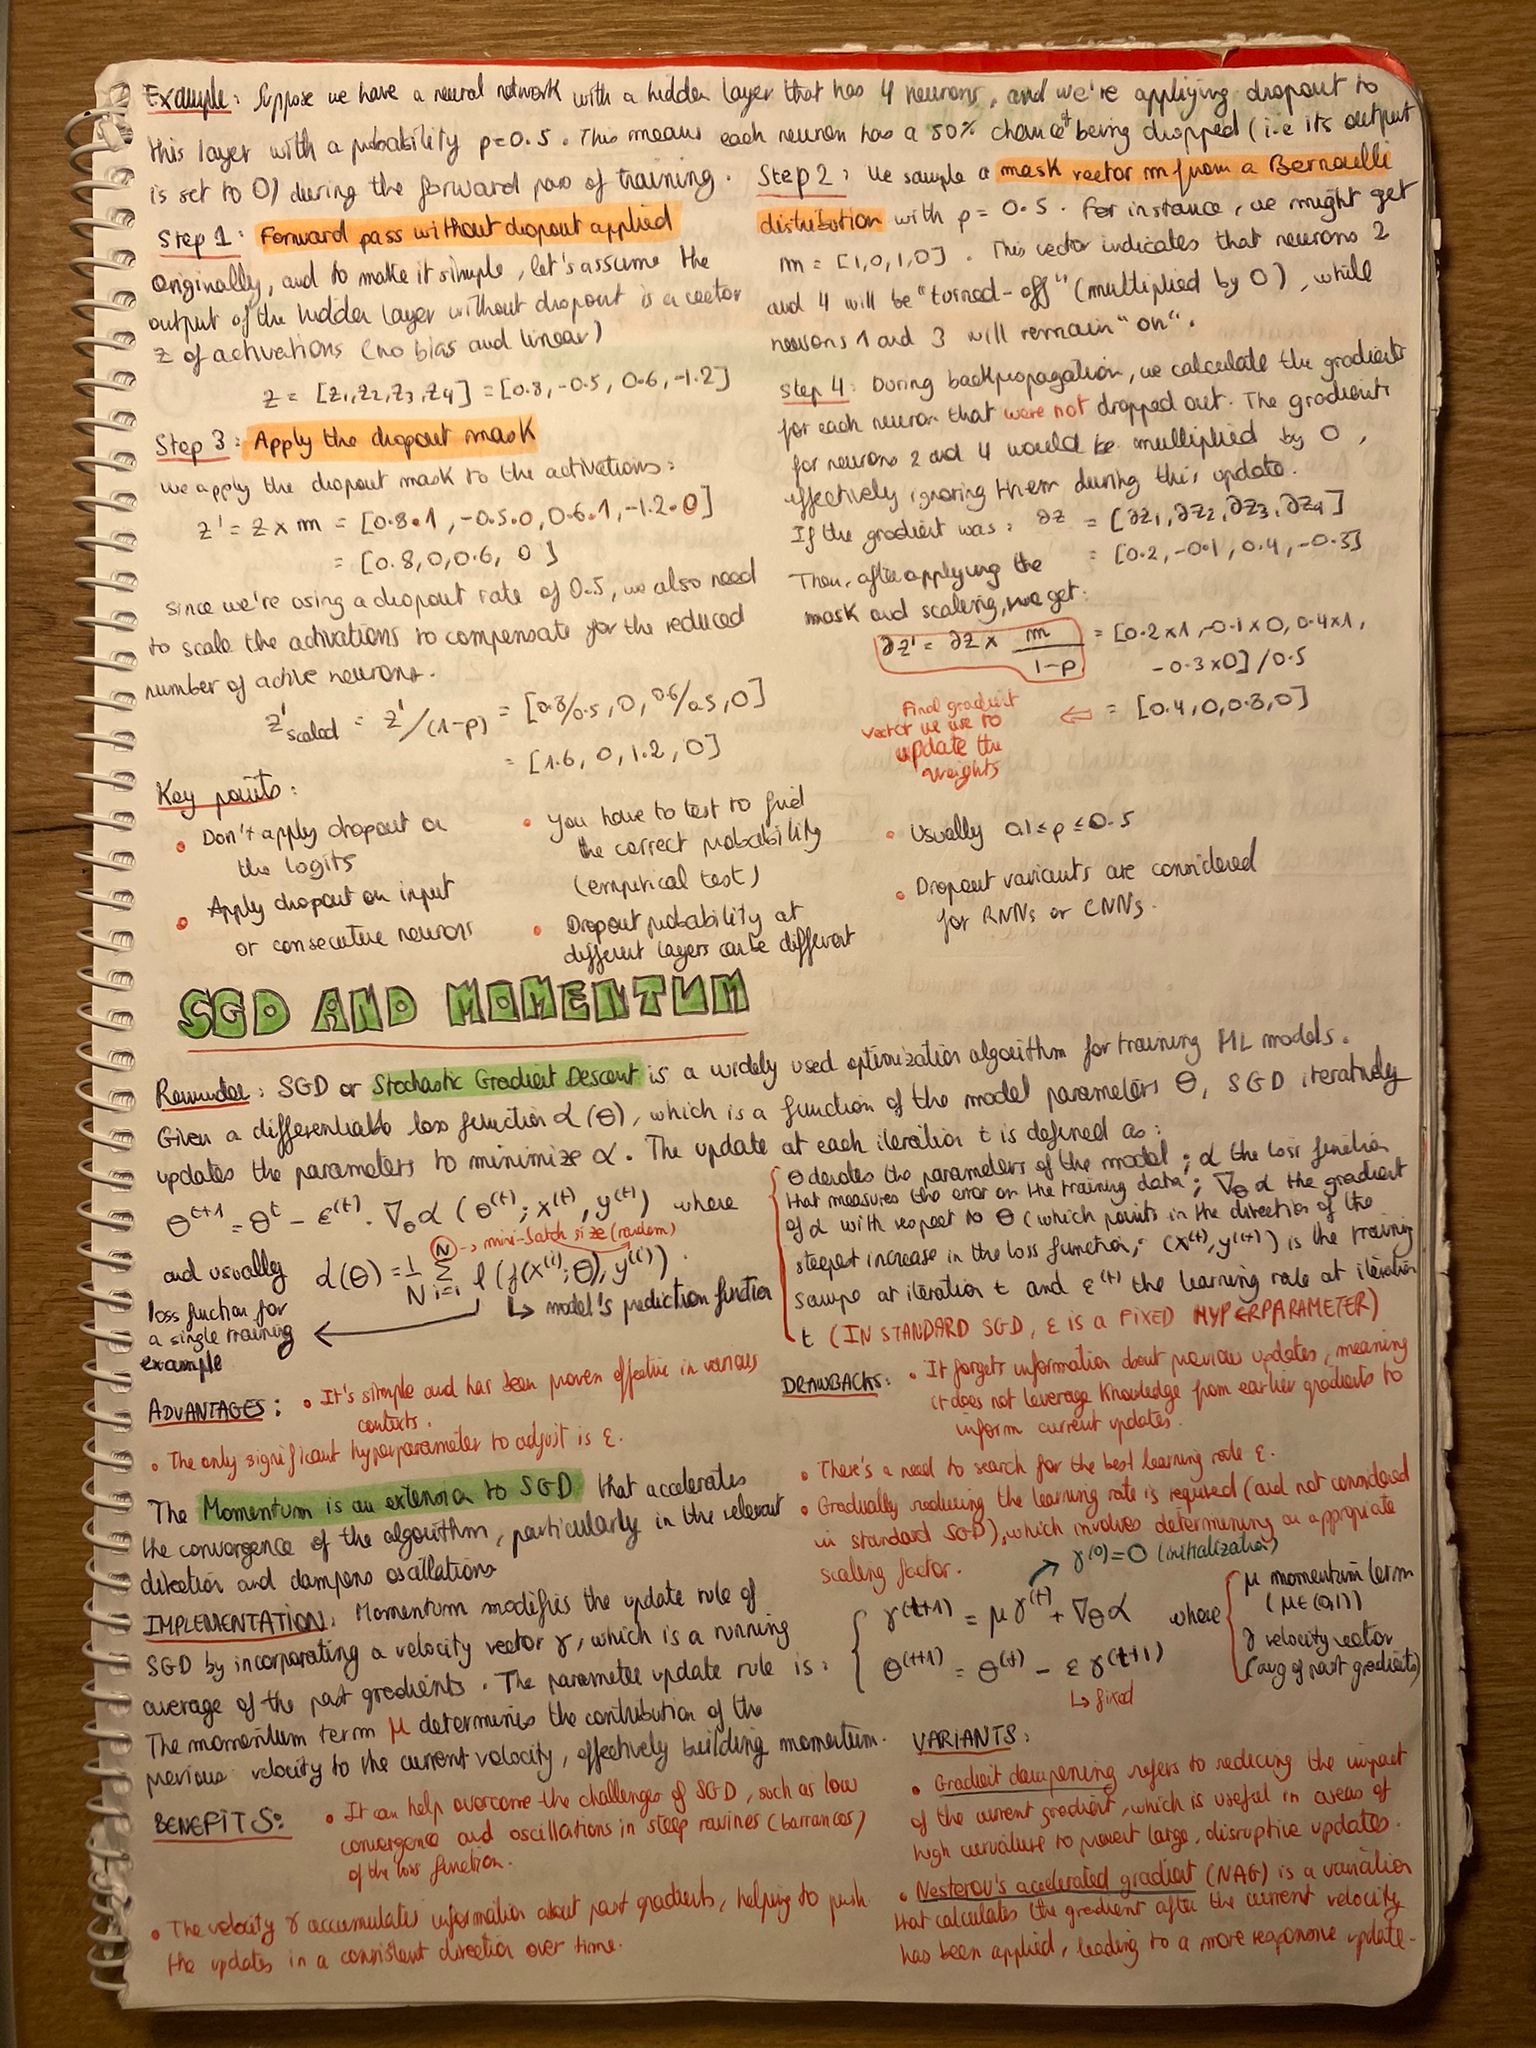 Example: Suppose we have a neural network with a hidden layer that has 4 neurons, and we're appliying dropout to
this layer with a probability p=0.5. This means each neuron has a 50% chance of being dropped (i.e its output
is set to 0) during the forward pass of training.
Step 1: Forward pass without dropout applied
Originally, and to make it simple, let's assume the
output of the hidden layer without dropout is a vector
z of activations (no bias and linear)
z = [z₁, z₂, z₃, z₄] = [0.8, -0.5, 0.6, -1.2]
Step 2: We sample a mask vector m from a Bernoulli
distribution with p = 0.5. For instance, we might get
m = [1,0,1,0]. This vector indicates that neurons 2
and 4 will be "turned-off" (multiplied by 0), while
neurons 1 and 3 will remain "on".
Step 3: Apply the dropout mask
we apply the dropout mask to the activations:
z' = z × m = [0.8·1, -0.5·0, 0.6·1, -1.2·0]
= [0.8, 0, 0.6, 0]
since we're using a dropout rate of 0.5, we also need
to scale the activations to compensate for the reduced
number of active neurons.
z'scaled = z'/(1-p) = [0.8/0.5, 0, 0.6/0.5, 0]
= [1.6, 0, 1.2, 0]
Step 4: During backpropagation, we calculate the gradients
for each neuron that were not dropped out. The gradients
for neurons 2 and 4 would be multiplied by 0,
effectively ignoring them during this update.
If the gradient was: ∂z = [∂z₁, ∂z₂, ∂z₃, ∂z₄]
= [0.2, -0.1, 0.4, -0.3]
Then, after applying the
mask and scaling, we get:
∂z' = ∂z × m/(1-p) = [0.2×1, -0.1×0, 0.4×1,
-0.3×0] /0.5
⇐ = [0.4, 0, 0.8, 0]
Final gradient
vector we use to
update the
weights
Key points:
• Don't apply dropout on
the logits
• Apply dropout on input
or consecutive neurons
• You have to test to find
the correct probability
(empirical test)
• Dropout probability at
different layers can be different
• Usually 0.1 ≤ p ≤ 0.5
• Dropout variants are considered
for RNNs or CNNs.
SGD AND MOMENTUM
Reminder: SGD or Stochastic Gradient Descent is a widely used optimization algorithm for training ML models.
Given a differentiable loss function α(θ), which is a function of the model parameters θ, SGD iteratively
updates the parameters to minimize α. The update at each iteration t is defined as:
θᵗ⁺¹ = θᵗ - ε⁽ᵗ⁾ · ∇θ α (θ⁽ᵗ⁾; x⁽ᵗ⁾, y⁽ᵗ⁾) where
N → mini-batch size (random)
and usually α(θ) = 1/N Σ i=i N l(f(x⁽ⁱ⁾; θ), y⁽ⁱ⁾).
↳ model's prediction function
loss function for
a single training
example
θ denotes the parameters of the model; α the loss function
that measures the error on the training data; ∇θ α the gradient
of α with respect to θ (which points in the direction of the
steepest increase in the loss function; (x⁽ᵗ⁾, y⁽ᵗ⁾) is the training
sample at iteration t and ε⁽ᵗ⁾ the learning rate at iteration
t (IN STANDARD SGD, ε IS A FIXED HYPERPARAMETER)
ADVANTAGES: • It's simple and has been proven effective in various
contexts.
• The only significant hyperparameter to adjust is ε.
DRAWBACKS: • It forgets information about previous updates, meaning
it does not leverage knowledge from earlier gradients to
inform current updates.
• There's a need to search for the best learning rate ε.
• Gradually reducing the learning rate is required (and not considered
in standard SGD), which involves determining an appropriate
scaling factor.
The Momentum is an extension to SGD that accelerates
the convergence of the algorithm, particularly in the relevant
direction and dampens oscillations
IMPLEMENTATION: Momentum modifies the update rule of
SGD by incorporating a velocity vector γ, which is a running
average of the past gradients. The parameter update rule is:
γ⁽⁰⁾ = 0 (initialization)
γ(t+1) = μγ⁽ᵗ⁾ + ∇θ α where
θ⁽ᵗ⁺¹⁾ = θ⁽ᵗ⁾ - ε γ(t+1)
↳ fixed
μ momentum term
(μ∈(0,1))
γ velocity vector
(avg of past gradients)
The momentum term μ determines the contribution of the
previous velocity to the current velocity, effectively building momentum.
BENEFITS: • It can help overcome the challenges of SGD, such as low
convergence and oscillations in steep ravines (barrancos)
of the loss function.
• The velocity γ accumulates information about past gradients, helping to push
the updates in a consistent direction over time.
VARIANTS:
• Gradient dampening refers to reducing the impact
of the current gradient, which is useful in areas of
high curvature to prevent large, disruptive updates.
• Nesterov's accelerated gradient (NAG) is a variation
that calculates the gradient after the current velocity
has been applied, leading to a more responsive update.